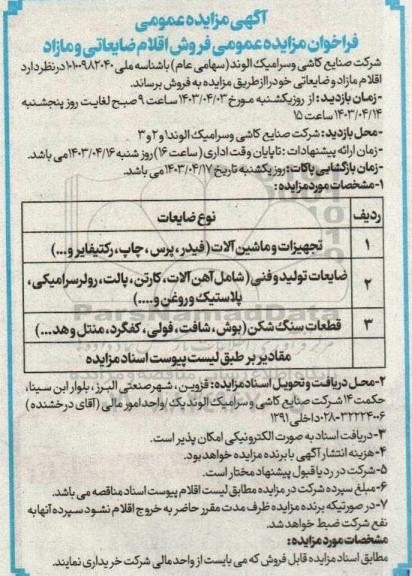 آگهی مزایده عمومی
فراخوان مزایده عمومی فروش اقلام ضایعاتی و مازاد
شرکت صنایع کاشی و سرامیک الوند (سهامی عام) باشناسه ملی ۱۰۱۰۰۹۸۲۰۴۰ در نظر دارد
اقلام مازاد و ضایعاتی خود را از طریق مزایده به فروش برساند.
-زمان بازدید: از روز یکشنبه مورخ ۱۴۰۳/۰۴/۰۳ ساعت ۹ صبح لغایت روز پنجشنبه
۱۴۰۳/۰۴/۱۴ ساعت ۱۵
-محل بازدید: شرکت صنایع کاشی و سرامیک الوند ۱ و ۲ و ۳
-زمان ارائه پیشنهادات: تا پایان وقت اداری (ساعت ۱۶) روز شنبه ۱۴۰۳/۰۴/۱۶ می باشد.
-زمان بازگشایی پاکات: روز یکشنبه تاریخ ۱۴۰۳/۰۴/۱۷ می باشد.
۱-مشخصات مورد مزایده:
ردیف نوع ضایعات
۱ تجهیزات و ماشین آلات (فیدر، پرس، چاپ، رکتیفایر و...)
۲ ضایعات تولید و فنی (شامل آهن آلات، کارتن، پالت، رولر سرامیکی،
پلاستیک و روغن و....)
۳ قطعات سنگ شکن (بوش، شافت، فولی، کفگرد، منتل و هد...)
مقادیر بر طبق لیست پیوست اسناد مزایده
ParsNamadData
۲-محل دریافت و تحویل اسناد مزایده: قزوین، شهر صنعتی البرز، بلوار ابن سینا،
حکمت ۱۴ شرکت صنایع کاشی و سرامیک الوند یک واحد امور مالی (آقای درخشنده)
۰۲۸-۳۲۲۲۴۰۰۶ داخلی ۱۲۹۱
۳-دریافت اسناد به صورت الکترونیکی امکان پذیر است.
۴-هزینه انتشار آگهی با برنده مزایده خواهد بود.
۵-شرکت در رد یا قبول پیشنهاد مختار است.
۶-مبلغ سپرده شرکت در مزایده مطابق لیست اقلام پیوست اسناد مناقصه می باشد.
۷-در صورتیکه برنده مزایده ظرف مدت مقرر حاضر به خروج اقلام نشود سپرده آنها به
نفع شرکت ضبط خواهد شد.
مشخصات مورد مزایده:
مطابق اسناد مزایده قابل فروش که می بایست از واحد مالی شرکت خریداری نمایند.